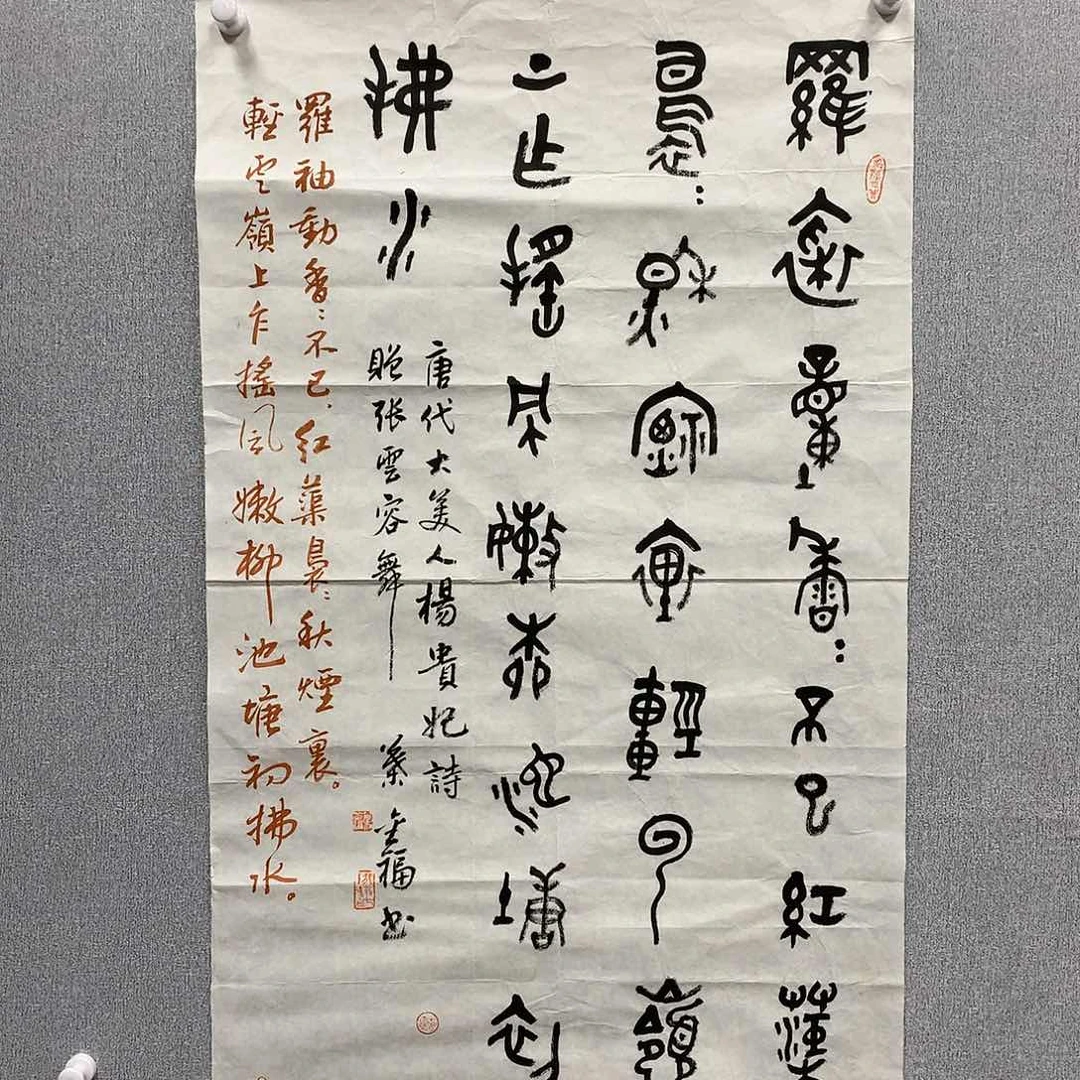 羅袖動香:不已紅蕖
裊:秋煙裏輕雲嶺
上乍搖風嫩柳池塘初
拂水
唐代大美人楊貴妃詩
贈張雲容舞 葉金福书
羅袖動香:不已,紅蕖裊:秋煙裏。
輕雲嶺上乍搖風嫩柳池塘初拂水。